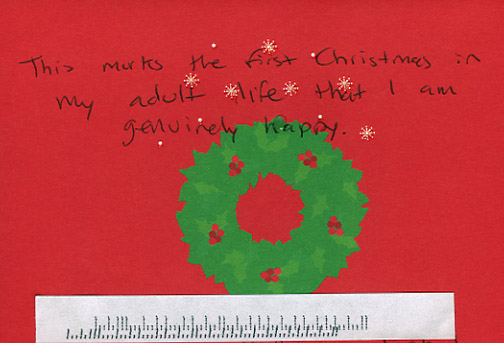 This marks the first Christmas in
my adult life that I am
genuinely happy.